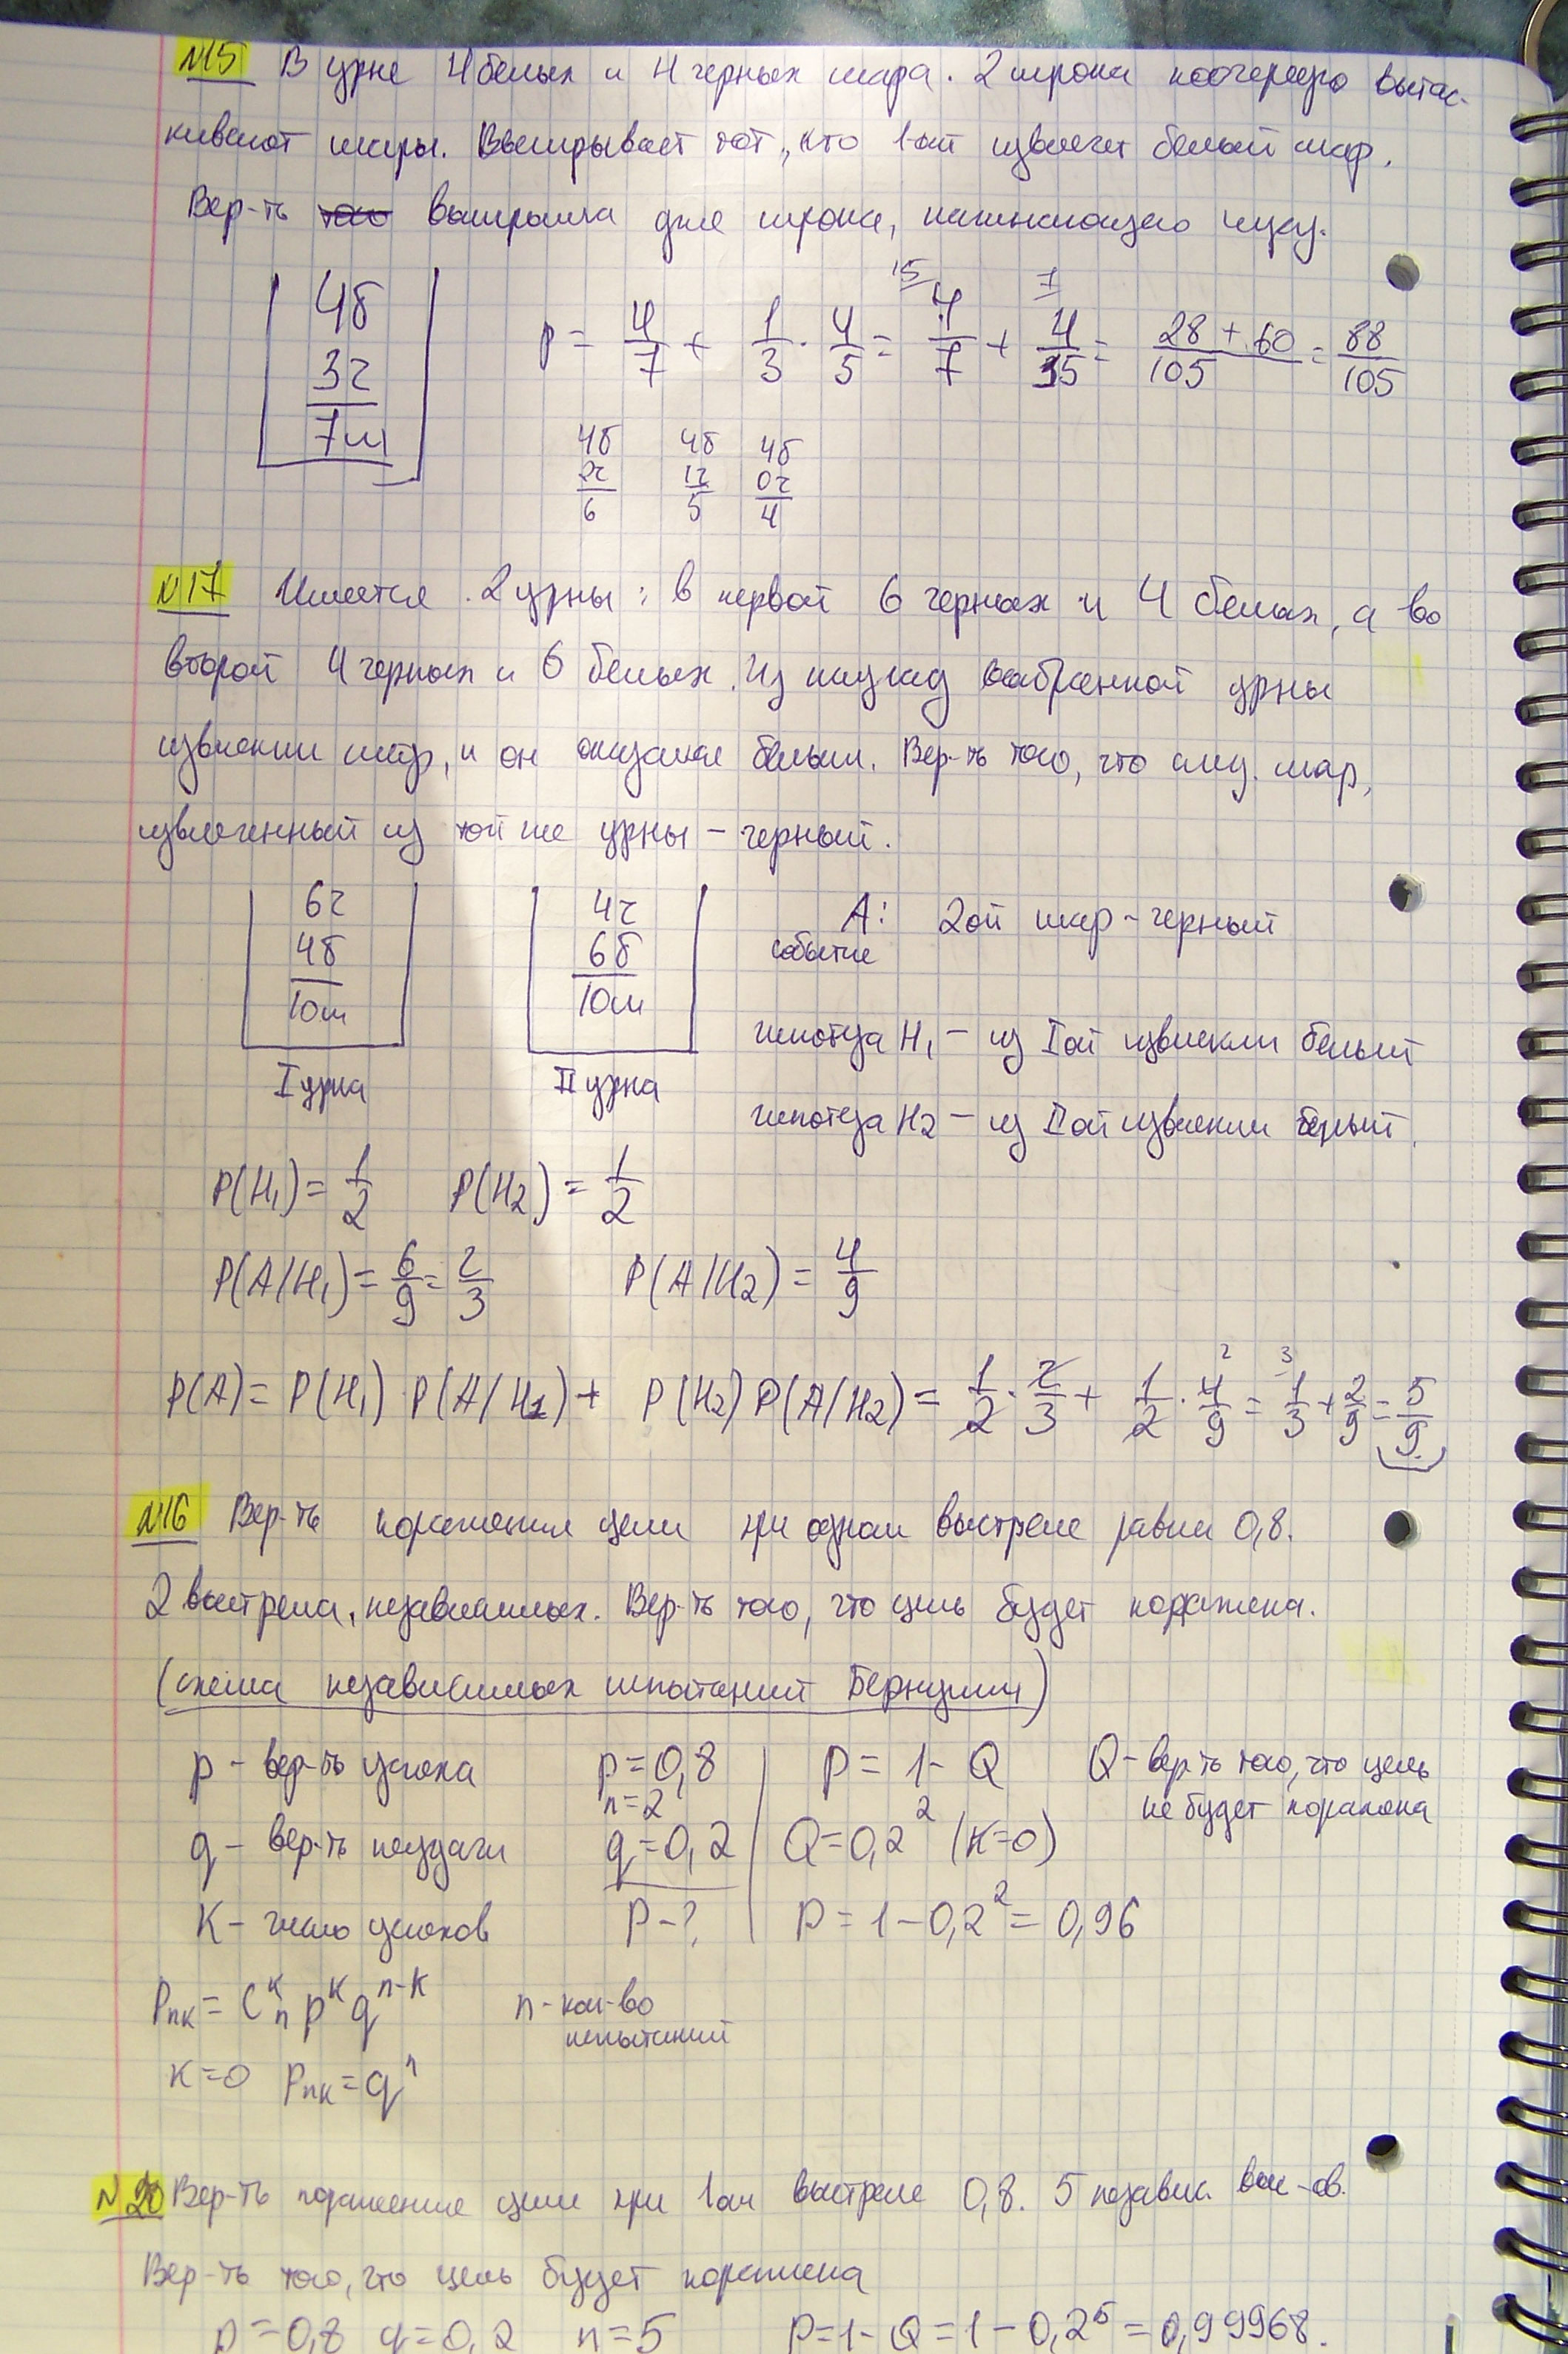 №15 В урне 4 белых и 4 черных шара. 2 игрока поочередно вытас-
кивают шары. Выигрывает тот, кто 1ый извлечет белый шар.
Вер-ть выигрыша для игрока, начинающего игру.
4б
3ч
7ш
p = 4/7 + 1/3 · 4/5 = 4/7 + 4/15 = (28 + 60)/105 = 88/105
15 7
4б 4б 4б
2ч 1ч 0ч
6 5 4
№17 Имеется 2 урны: в первой 6 черных и 4 белых, а во
второй 4 черных и 6 белых. Из наугад выбранной урны
извлекли шар, и он оказался белым. Вер-ть того, что след. шар,
извлеченный из той же урны – черный.
6ч
4б
10ш
I урна
4ч
6б
10ш
II урна
A: 2ой шар – черный
событие
гипотеза H₁ – из I ой извлекли белый
гипотеза H₂ – из II ой извлекли белый.
P(H₁) = 1/2 P(H₂) = 1/2
P(A/H₁) = 6/9 = 2/3 P(A/H₂) = 4/9
P(A) = P(H₁) P(A/H₁) + P(H₂) P(A/H₂) = 1/2 · 2/3 + 1/2 · 4/9 = 1/3 + 2/9 = 5/9
№16 Вер-ть поражения цели при одном выстреле равна 0,8.
2 выстрела, независимых. Вер-ть того, что цель будет поражена.
(схема независимых испытаний Бернулли)
p – вер-ть успеха p = 0,8 P = 1 - Q Q – вер-ть того, что цель
n = 2 не будет поражена
q – вер-ть неудачи q = 0,2 Q = 0,2² (K=0)
K – число успехов P - ? P = 1 – 0,2² = 0,96
Pnк = Cₙᴷ pᴷ qⁿ⁻ᴷ n - кол-во
испытаний
K = 0 Pnк = qⁿ
№20 Вер-ть поражение цели при 1ом выстреле 0,8. 5 независ. выс-ов.
Вер-ть того, что цель будет поражена
p = 0,8 q = 0,2 n = 5 P = 1 - Q = 1 – 0,2⁵ = 0,99968.